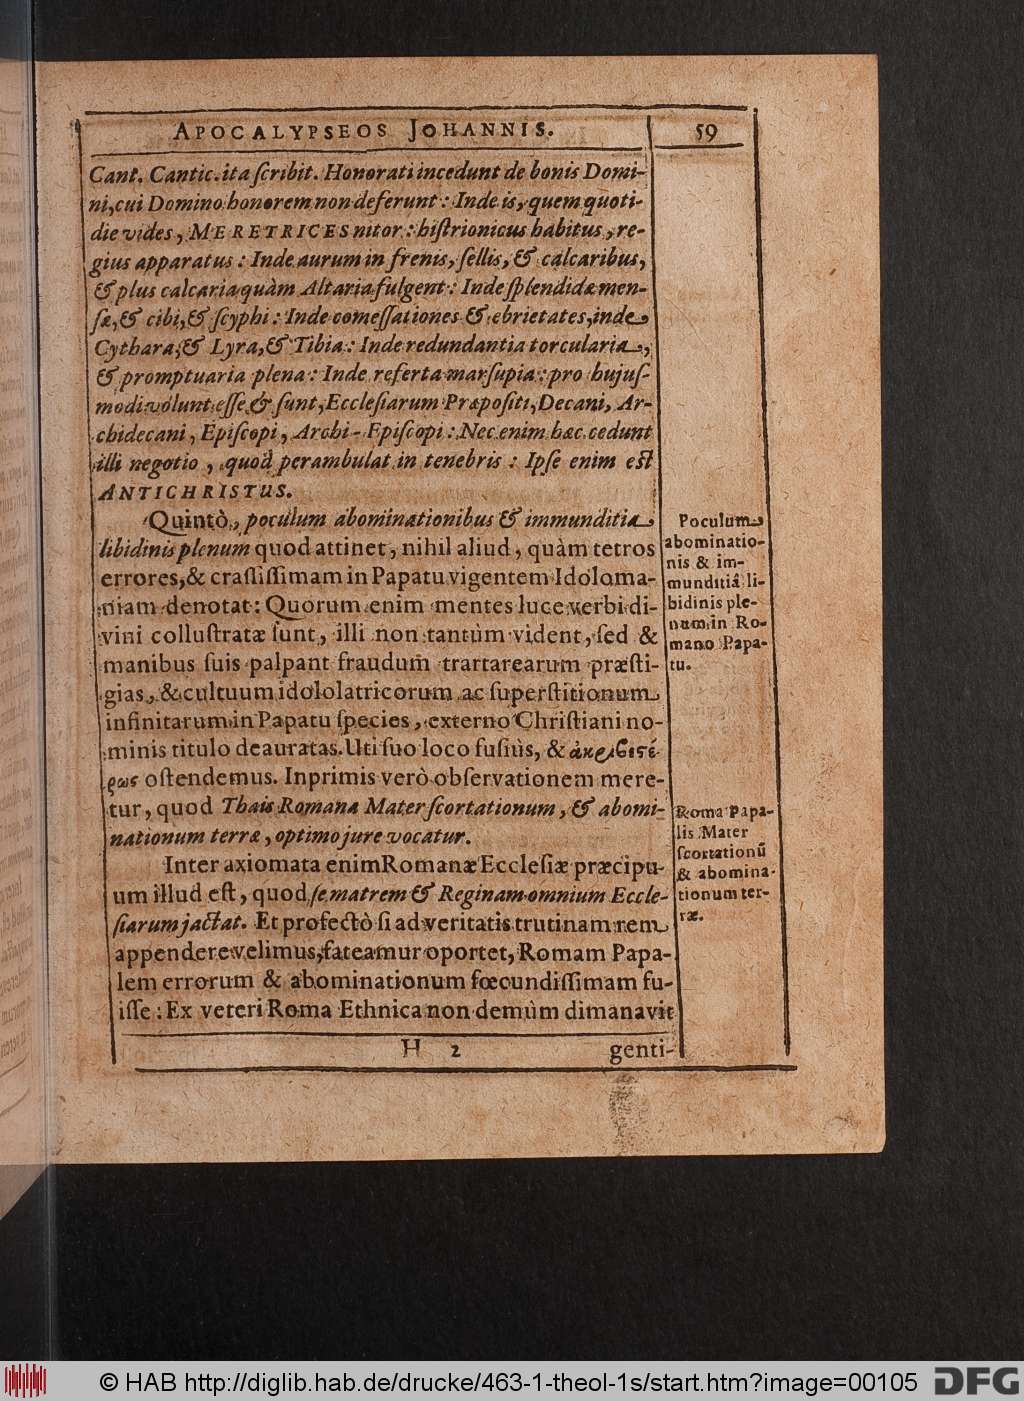 APOCALYPSEOS JOHANNIS. 59
Cant. Cantic. ita ſcribit. Honorati incedunt de bonis Domi-
ni, cui Domino honorem non deferunt: Inde is, quem quoti-
die vides, MERETRICES nitor: hiſtrionicus habitus, re-
gius apparatus: Inde aurum in frenis, ſellis, & calcaribus,
& plus calcaria quàm Altaria fulgent: Inde ſplendidæ men-
ſæ, & cibi, & ſcyphi: Inde comeſſationes & ebrietates, inde
Cythara, & Lyra, & Tibia: Inde redundantia torcularia,
& promptuaria plena: Inde referta marſupia: pro hujuſ-
modi volunt eſſe & ſunt, Eccleſiarum Præpoſiti, Decani, Ar-
chidecani, Epiſcopi, Archi-Epiſcopi: Nec enim hæc cedunt
illi negotio, quod perambulat in tenebris: Ipſe enim eſt
ANTICHRISTUS.
Quintò, poculum abominationibus & immunditia
libidinis plenum quod attinet, nihil aliud, quàm tetros
errores, & craſſiſſimam in Papatu vigentem Idoloma-
niam denotat: Quorum enim mentes luce verbi di-
vini colluſtratæ ſunt, illi non tantùm vident, ſed &
manibus ſuis palpant fraudum trartarearum præſti-
gias, & cultuum idololatricorum ac ſuperſtitionum
infinitarum in Papatu ſpecies, externo Chriſtiani no-
minis titulo deauratas. Uti ſuo loco fuſiùs, & ἀκριβεστέ-
ρως oſtendemus. Inprimis verò obſervationem mere-
tur, quod Thais Romana Mater ſcortationum, & abomi-
nationum terræ, optimo jure vocatur.
Inter axiomata enim Romanæ Eccleſiæ præcipu-
um illud eſt, quod ſe matrem & Reginam omnium Eccle-
ſiarum jactat. Et profectò ſi ad veritatis trutinam rem
appendere velimus, fateamur oportet, Romam Papa-
lem errorum & abominationum fœcundiſſimam fu-
iſſe: Ex veteri Roma Ethnica non demùm dimanavit
H 2 genti-
Poculum
abominatio-
nis & im-
munditiâ li-
bidinis ple-
num in Ro-
mano Papa-
tu.
Roma Papa-
lis Mater
ſcortationū
& abomina-
tionum ter-
ræ.
© HAB http://diglib.hab.de/drucke/463-1-theol-1s/start.htm?image=00105
DFG